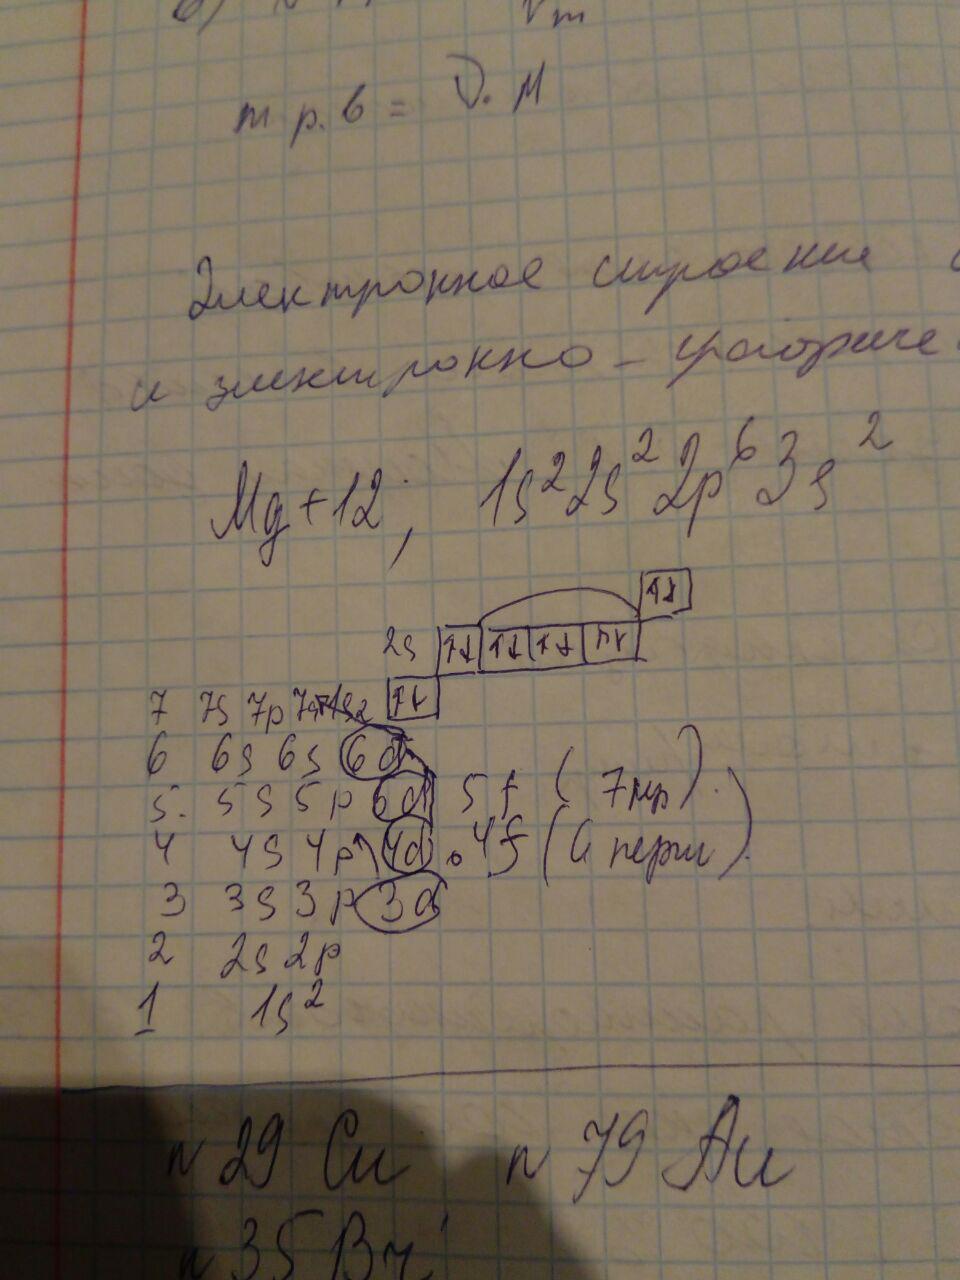 б) Vm
m р.в = ν. M
Электронное строение
и электронно - графиче
Mg + 12; 1s² 2s² 2p⁶ 3s²
↑↓
2s ↑↓ ↑↓ ↑↓ ↑↓
↑↓
7 7s 7p
6 6s 6s 6d
5. 5s 5p 6d 5f ( 7пер).
4 4s 4p 4d. 4f (6 пери).
3 3s 3p 3d
2 2s 2p
1 1s²
n 29 Cu n 79 Au
n 35 Br